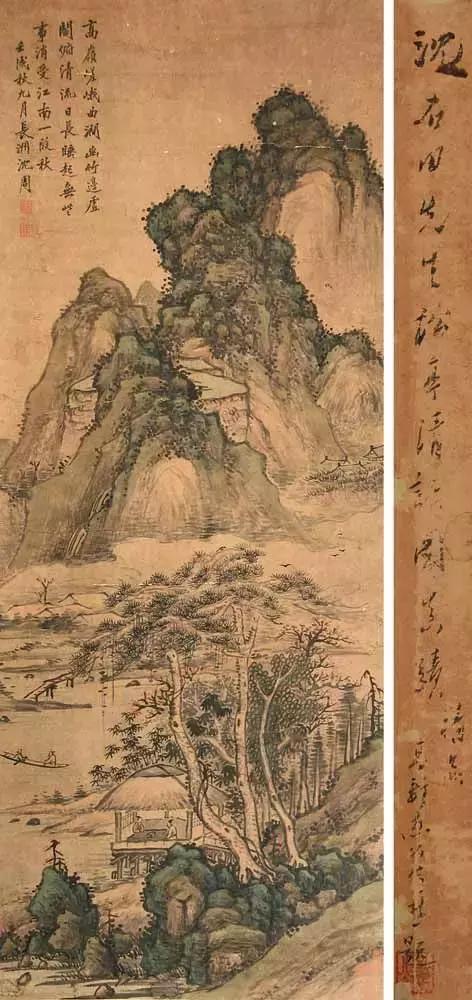 高嶺嵯峨曲澗幽竹邊虛
閣俯清流日長睡起無些
事消受江南一段秋
壬戌秋九月長洲沈周
沈石田先生松亭清話圖真蹟
題